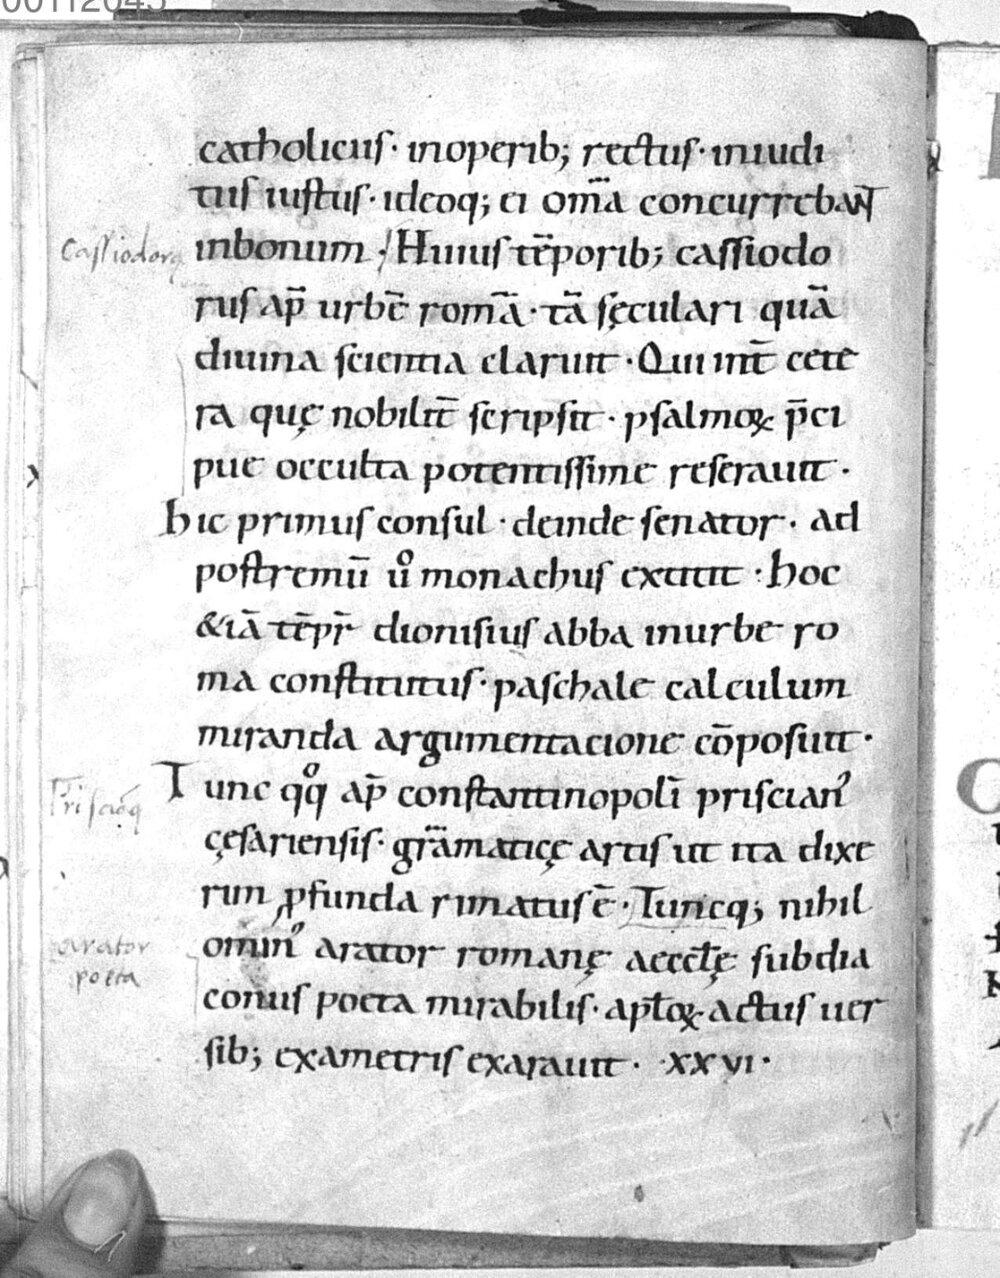 catholicus· inoperib; rectus· iniudi
tiis iustus· ideoq; ei om̅a concurrebant
Cassiodorꝯ
inbonum ; Huius te̅porib; cassiodo
rus ap̅ urbe̅ roma̅· ta̅ sęculari qua̅
diuina scientia claruit · Qui int̅ cete
ra quę nobilit̅ scripsit · psalmoꝝ p̅ci
pue occulta potentissime reserauit ·
hic primus consul · deinde senator · ad
postremu̅ uͦ monachus extitit · hoc
&ia̅ te̅pr̅ dionisius abba inurbe ro
ma constitutus· paschale calculum
miranda argumentacione co̅posuit ·
Tunc qͦq ap̅ constantinopoli̅ priscianꝰ
Priscianꝯ
çęsariensis· gra̅maticę artis ut ita dixe
rim ꝓfunda rimatus e̅ · Tuncq; nihil
ominꝰ arator romanę aeccl̅ę subdia
arator
poeta
conus poeta mirabilis· apl̅oꝝ actus uer
sib; exametris exarauit · ·xxvi·